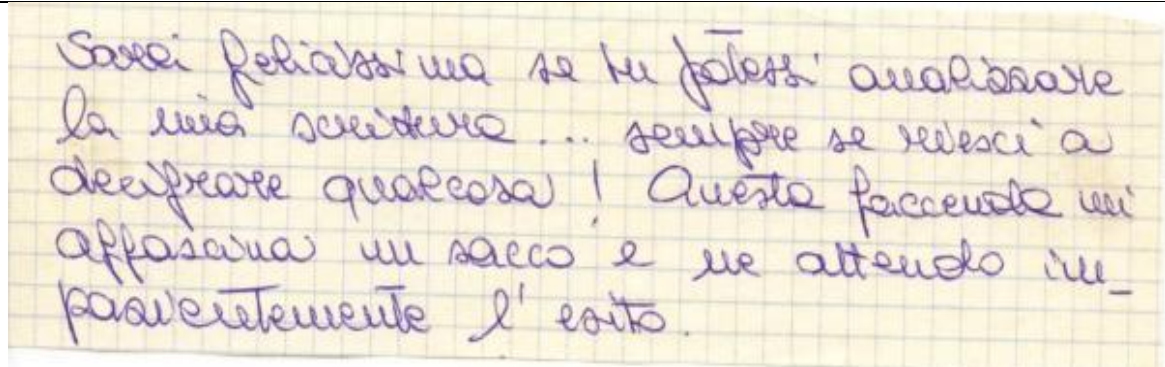 Sarei felicissima se tu potessi analizzare
la mia scrittura... sempre se riesci a
decifrare qualcosa! Questa faccenda mi
affascina un sacco e ne attendo im_
pazientemente l'esito.